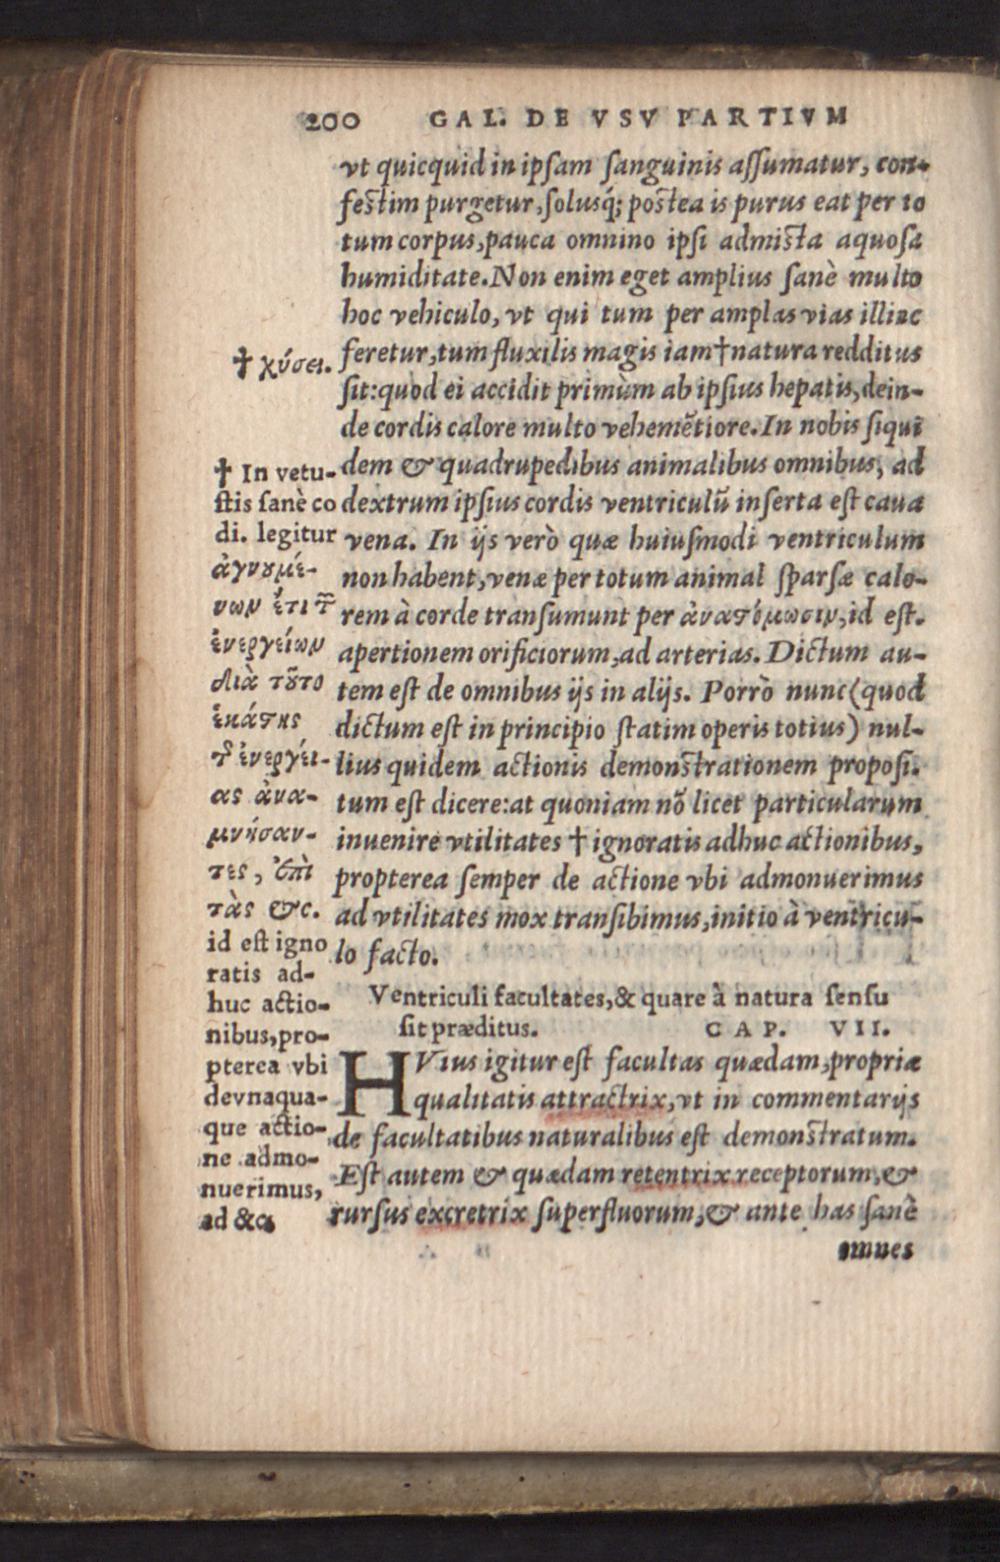 200 GAL. DE VSV PARTIVM
vt quicquid in ipsam sanguinis assumatur, con-
festim purgetur, solusq́; postea is purus eat per to
tum corpus, pauca omnino ipsi admista aquosa
humiditate. Non enim eget amplius sanè multo
hoc vehiculo, vt qui tum per amplas vias illinc
feretur, tum fluxilis magis iam † natura redditus
sit: quod ei accidit primùm ab ipsius hepatis, dein-
de cordis calore multo vehemẽtiore. In nobis siqui
dem & quadrupedibus animalibus omnibus, ad
dextrum ipsius cordis ventriculũ inserta est caua
vena. In ijs verò quæ huiusmodi ventriculum
non habent, venæ per totum animal sparsæ calo-
rem à corde transumunt per ἀναστόμωσιν, id est.
apertionem orificiorum, ad arterias. Dictum au-
tem est de omnibus ijs in alijs. Porrò nunc (quod
dictum est in principio statim operis totius) nul-
lius quidem actionis demonstrationem proposi-
tum est dicere: at quoniam nõ licet particularum
inuenire vtilitates † ignoratis adhuc actionibus,
propterea semper de actione vbi admonuerimus
ad vtilitates mox transibimus, initio à ventricu-
lo facto.
Ventriculi facultates, & quare à natura sensu
sit præditus. CAP. VII.
HVius igitur est facultas quædam, propriæ
qualitatis attractrix, vt in commentarijs
de facultatibus naturalibus est demonstratum.
Est autem & quædam retentrix receptorum, &
rursus excretrix superfluorum, & ante has sanè
omnes
† χύσει.
† In vetu-
stis sanè co
di. legitur
ἀγνουμέ-
νων ἔτι τ͂
ἐνεργείων
διὰ τοῦτο
ἑκάστης
τ͂ ἐνεργεί-
ας ἀνα-
μνήσαν-
τες, ἐπὶ
τὰς &c.
id est igno
ratis ad-
huc actio-
nibus, pro-
pterea vbi
devnaqua-
que actio-
ne admo-
nuerimus,
ad &c.